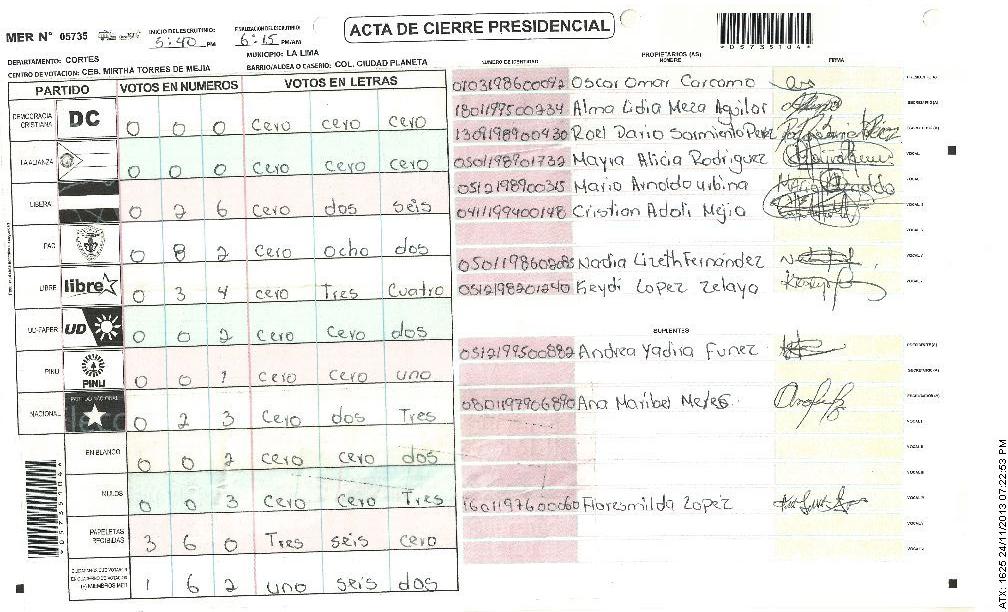 MER N° 05735
INICIO DEL ESCRUTINIO: 5:40 PM
FINALIZACION DEL ESCRUTINIO: 6:15 PM/AM
ACTA DE CIERRE PRESIDENCIAL
05735104
DEPARTAMENTO: CORTES
MUNICIPIO: LA LIMA
CENTRO DE VOTACION: CEB. MIRTHA TORRES DE MEJIA
BARRIO/ALDEA O CASERIO: COL. CIUDAD PLANETA
PARTIDO VOTOS EN NUMEROS VOTOS EN LETRAS
DEMOCRACIA CRISTIANA DC 0 0 0 cero cero cero
LA ALIANZA 0 0 0 cero cero cero
LIBERAL 0 2 6 cero dos seis
PAC 0 8 2 cero ocho dos
LIBRE libre 0 3 4 cero Tres cuatro
UD-FAPER UD 0 0 2 cero cero dos
PINU PINU 0 0 1 cero cero uno
NACIONAL PARTIDO NACIONAL 0 2 3 cero dos Tres
EN BLANCO 0 0 2 cero cero dos
NULOS 0 0 3 cero cero Tres
PAPELETAS RECIBIDAS 3 6 0 Tres seis cero
1 6 2 uno seis dos
PROPIETARIOS (AS)
NUMERO DE IDENTIDAD NOMBRE FIRMA
0103198600092 Oscar Omar Carcamo
1801199500734 Alma Lidia Meza Aguilar
1309198900430 Roel Dario Sarmiento Perez
0501198901732 Mayra Alicia Rodriguez VOCAL
0512198900315 Mario Arnoldo urbina VOCAL
0411199400148 Cristian Adoli Mejia
0501198602085 Nadia Lizeth Fernández
0512198201240 Keydi Lopez Zelaya
SUPLENTES
0512199500882 Andrea Yadira Funez
0801197906890 Ana Maribel Meyes
1601197600060 Floresmilda Lopez
ATX: 1625 24/11/2013 07:22:53 PM